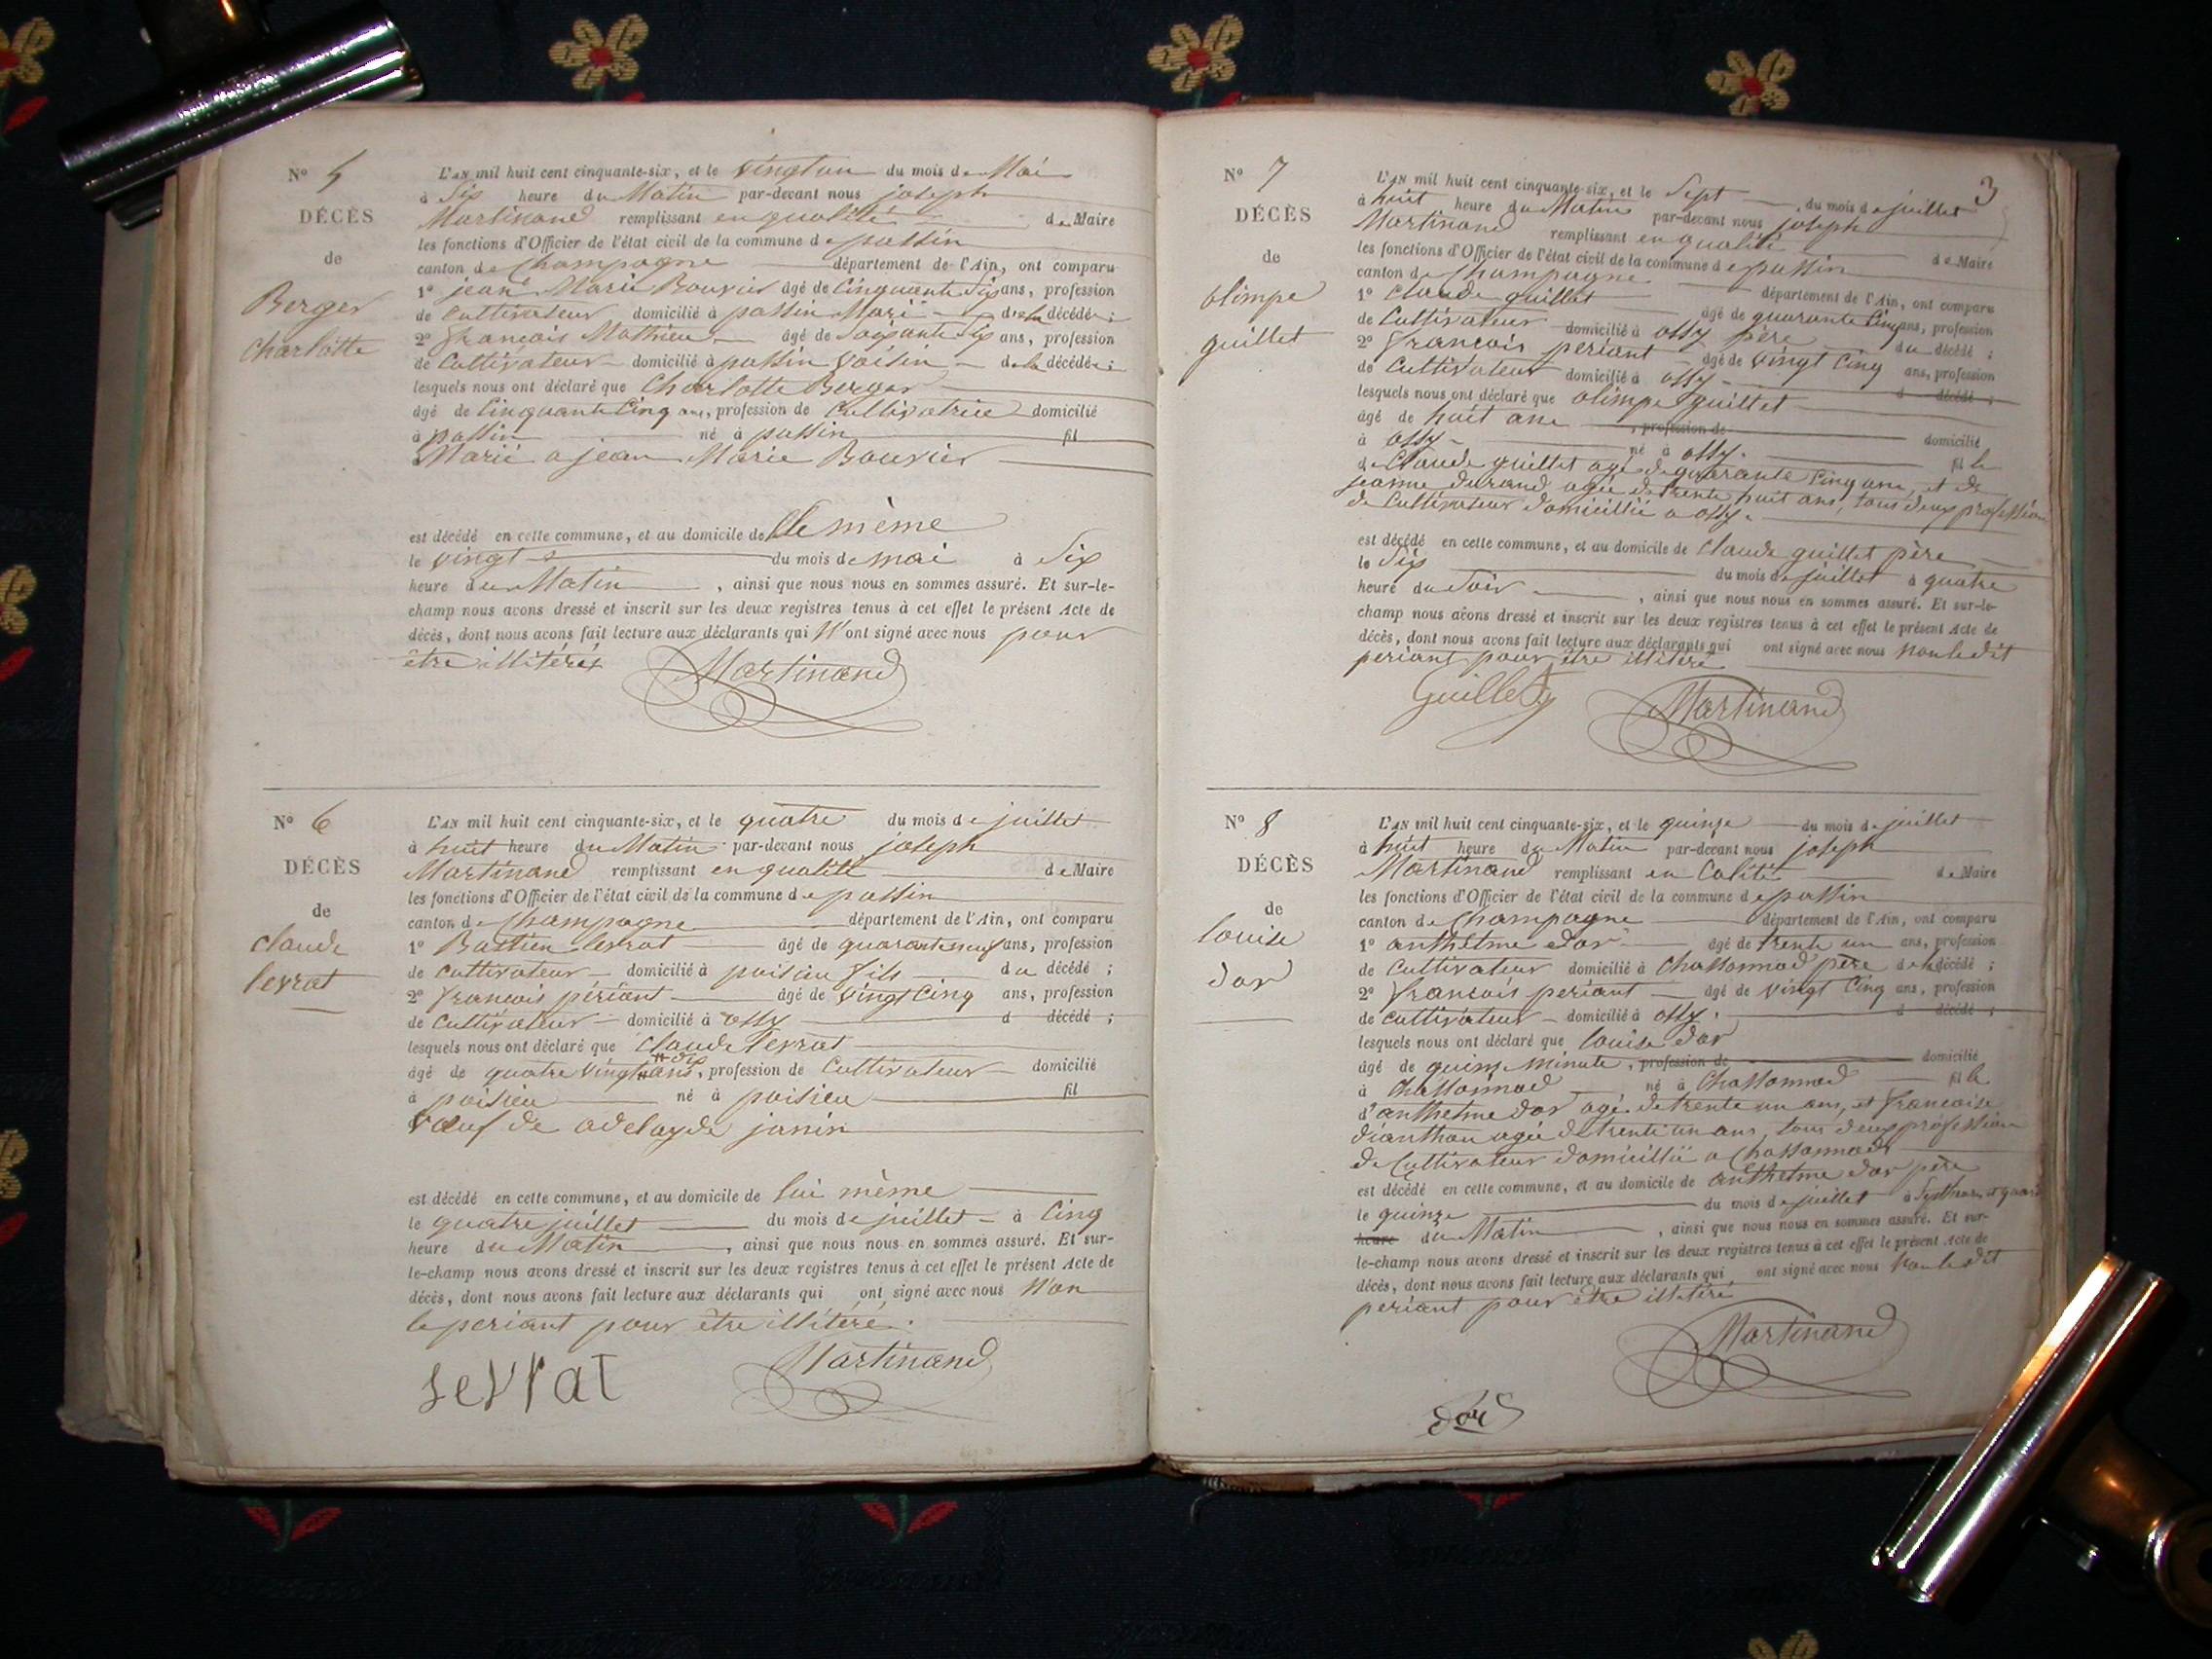 N° 5
DÉCÈS
de
Berger
Charlotte
L'AN mil huit cent cinquante-six, et le vingt un du mois de Mai
à Six heure du Matin par-devant nous joseph
Martinand remplissant en qualité de Maire
les fonctions d'Officier de l'état civil de la commune de passin
canton de Champagne département de l'Ain, ont comparu
1° jean Marie Bouvier âgé de Cinquante Six ans, profession
de Cultivateur domicilié à passin Mari de la décédée ;
2° francois Mathieu âgé de Soixante Six ans, profession
de Cultivateur domicilié à passin Voisin de la décédée ;
lesquels nous ont déclaré que Charlotte Berger
âgé de Cinquante Cinq ans, profession de Cultivatrice domicilié
à passin né à passin fil
Marié a jean Marie Bouvier
est décédé en cette commune, et au domicile de Elle même
le vingt du mois de mai à Six
heure du Matin, ainsi que nous nous en sommes assuré. Et sur-le-
champ nous avons dressé et inscrit sur les deux registres tenus à cet effet le présent Acte de
décès, dont nous avons fait lecture aux déclarants qui N'ont signé avec nous pour
être illitérés
Martinand
N° 6
DÉCÈS
de
claude
levrat
L'AN mil huit cent cinquante-six, et le quatre du mois de juillet
à huit heure du Matin par-devant nous joseph
Martinand remplissant en qualité de Maire
les fonctions d'Officier de l'état civil de la commune de passin
canton de Champagne département de l'Ain, ont comparu
1° Bastien levrat âgé de quarante neuf ans, profession
de cultivateur domicilié à poisieu fils du décédé ;
2° francois périant âgé de vingt Cinq ans, profession
de Cultivateur domicilié à ossy d décédé ;
lesquels nous ont déclaré que Claude levrat
dix
âgé de quatre vingt ans, profession de Cultivateur domicilié
à poisieu né à poisieu fil
Vœuf de adelayde janin
est décédé en cette commune, et au domicile de lui même
le quatre juillet du mois de juillet à Cinq
heure du Matin, ainsi que nous nous en sommes assuré. Et sur-
le-champ nous avons dressé et inscrit sur les deux registres tenus à cet effet le présent Acte de
décès, dont nous avons fait lecture aux déclarants qui ont signé avec nous Non
le periant pour être illitéré.
levrat
Martinand
3
N° 7
DÉCÈS
de
olimpe
guillet
L'AN mil huit cent cinquante-six, et le Sept du mois de juillet
à huit heure du Matin par-devant nous joseph
Martinand remplissant en qualité de Maire
les fonctions d'Officier de l'état civil de la commune de passin
canton de Champagne département de l'Ain, ont comparu
1° Claude guillet âgé de quarante Cinq ans, profession
de Cultivateur domicilié à ossy père du décédé ;
2° francois periant âgé de vingt Cinq ans, profession
de Cultivateur domicilié à ossy d décédé ;
lesquels nous ont déclaré que olimpe guillet
âgé de huit ans, profession de domicilié
à ossy né à ossy fil le
de Claude guillet agé de quarante Cinq ans, et de
jeanne durand agée de trente huit ans, tous deux profession
de Cultivateur domicillié a ossy.
est décédé en cette commune, et au domicile de Claude guillet père
le Six du mois de juillet à quatre
heure du Soir, ainsi que nous nous en sommes assuré. Et sur-le-
champ nous avons dressé et inscrit sur les deux registres tenus à cet effet le présent Acte de
décès, dont nous avons fait lecture aux déclarants qui ont signé avec nous Non le dit
periant pour être illitéré
Guillet
Martinand
N° 8
DÉCÈS
de
louise
dor
L'AN mil huit cent cinquante-six, et le quinze du mois de juillet
à huit heure du Matin par-devant nous joseph
Martinand remplissant en Calité de Maire
les fonctions d'Officier de l'état civil de la commune de passin
canton de Champagne département de l'Ain, ont comparu
1° anthelme dor âgé de trente un ans, profession
de Cultivateur domicilié à Chassonnod père de la décédé ;
2° francois periant âgé de vingt Cinq ans, profession
de cultivateur domicilié à ossy. d décédé ;
lesquels nous ont déclaré que louise dor
âgé de quinze minute, profession de domicilié
à Chassonnod né à Chassonnod fil le
d'anthelme dor agé de trente un ans, et francoise
dianthon agée de trente un ans, tous deux profession
de Cultivateur domicillié a Chassonnod
est décédé en cette commune, et au domicile de anthelme dor père
le quinze du mois de juillet à Sept heures et quart
heure du Matin, ainsi que nous nous en sommes assuré. Et sur-
le-champ nous avons dressé et inscrit sur les deux registres tenus à cet effet le présent Acte de
décès, dont nous avons fait lecture aux déclarants qui ont signé avec nous Non le dit
periant pour être illitéré
Martinand
dor